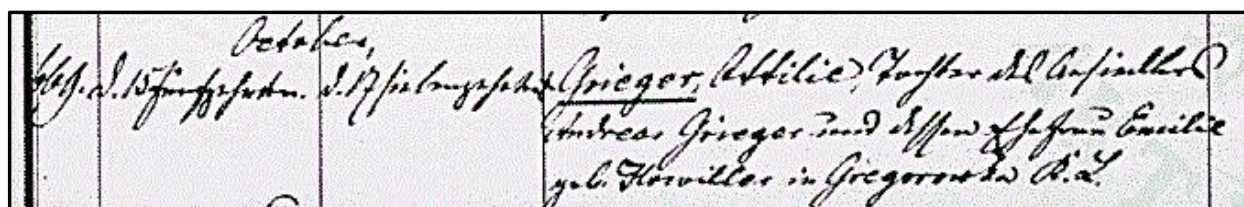 October,
d. 15 fünfzehnten. d. 17 siebenzehnten Grieger, Ottilie, Tochter des Ansiedlers
Andreas Grieger und dessen Ehefrau Emilie
geb. in Gregorowka K. L.